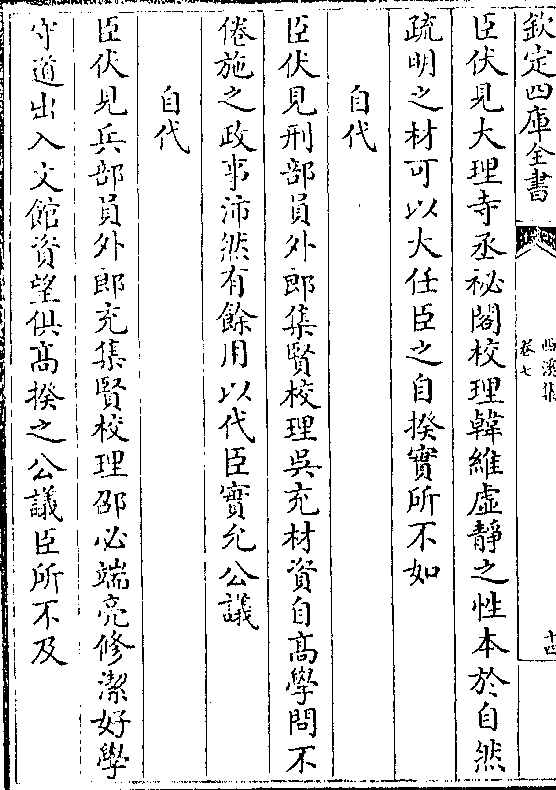 欽定四庫全書
西溪集
卷七
十四
臣伏見大理寺丞祕閣校理韓維虛靜之性本於自然
疏明之材可以大任臣之自揆實所不如
自代
臣伏見刑部員外郎集賢校理吳充材資自髙學問不
倦施之政事沛然有餘用以代臣實允公議
自代
臣伏見兵部員外郎充集賢校理邵必端亮修潔好學
守道出入文館資望俱髙揆之公議臣所不及